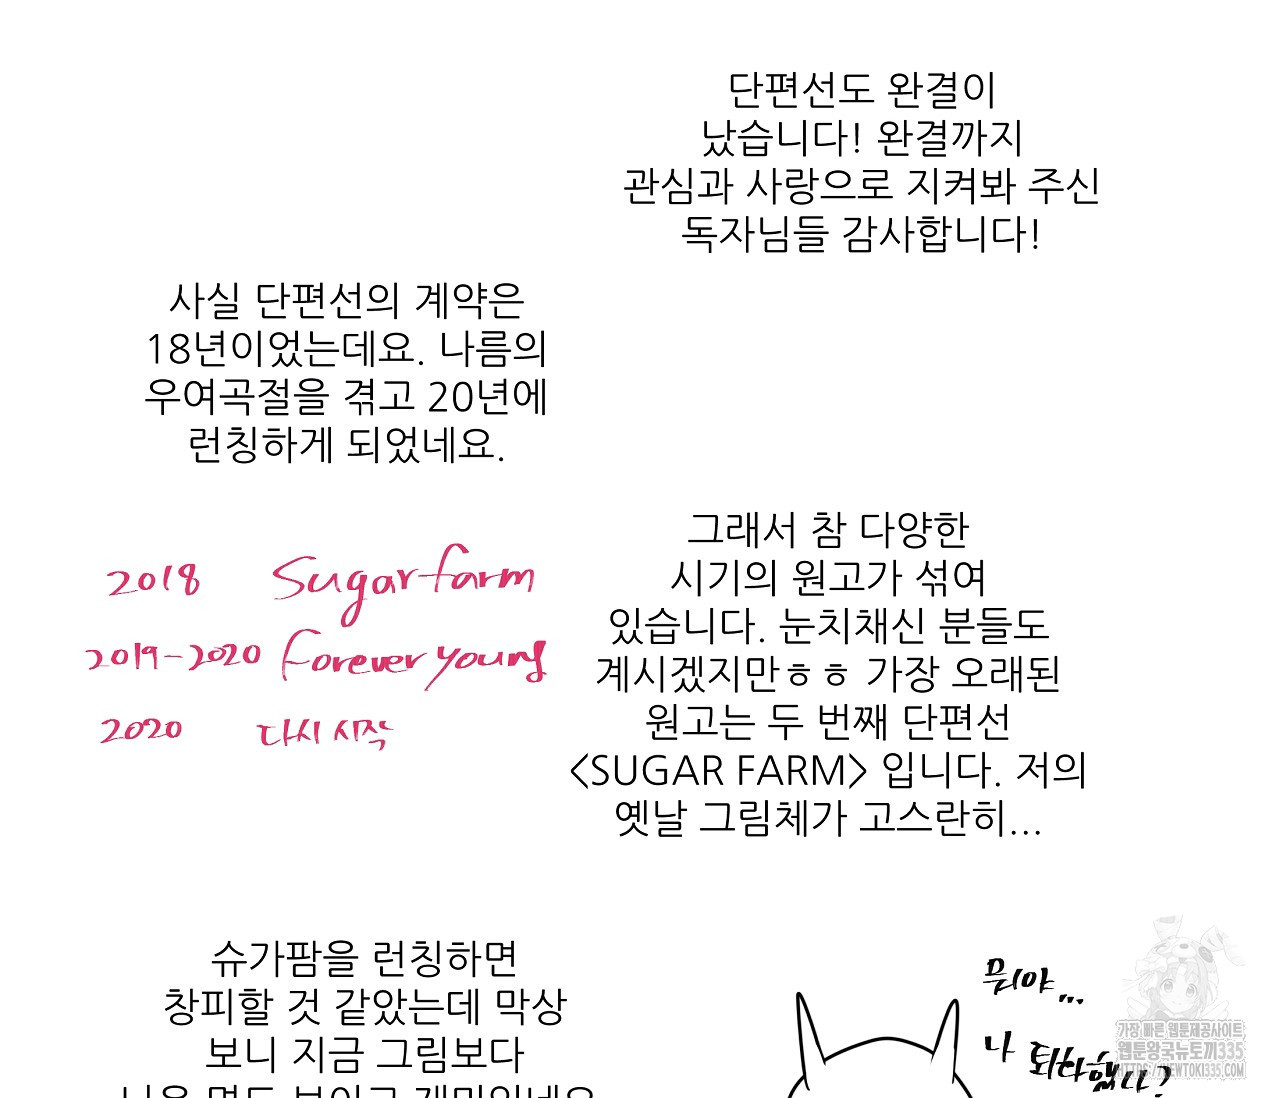 단편선도 완결이
났습니다! 완결까지
관심과 사랑으로 지켜봐 주신
독자님들 감사합니다!
사실 단편선의 계약은
18년이었는데요. 나름의
우여곡절을 겪고 20년에
런칭하게 되었네요.
2018 Sugar farm
2019-2020 forever young
2020 다시 시작
그래서 참 다양한
시기의 원고가 섞여
있습니다. 눈치채신 분들도
계시겠지만ㅎㅎ 가장 오래된
원고는 두 번째 단편선
<SUGAR FARM> 입니다. 저의
옛날 그림체가 고스란히...
슈가팜을 런칭하면
창피할 것 같았는데 막상
보니 지금 그림보다
나은 면도 보이고 재미있네요
뭐야...
나 퇴화했나?
가장 빠른 웹툰제공사이트
웹툰왕국뉴토끼335
HTTPS://NEWTOKI335.COM